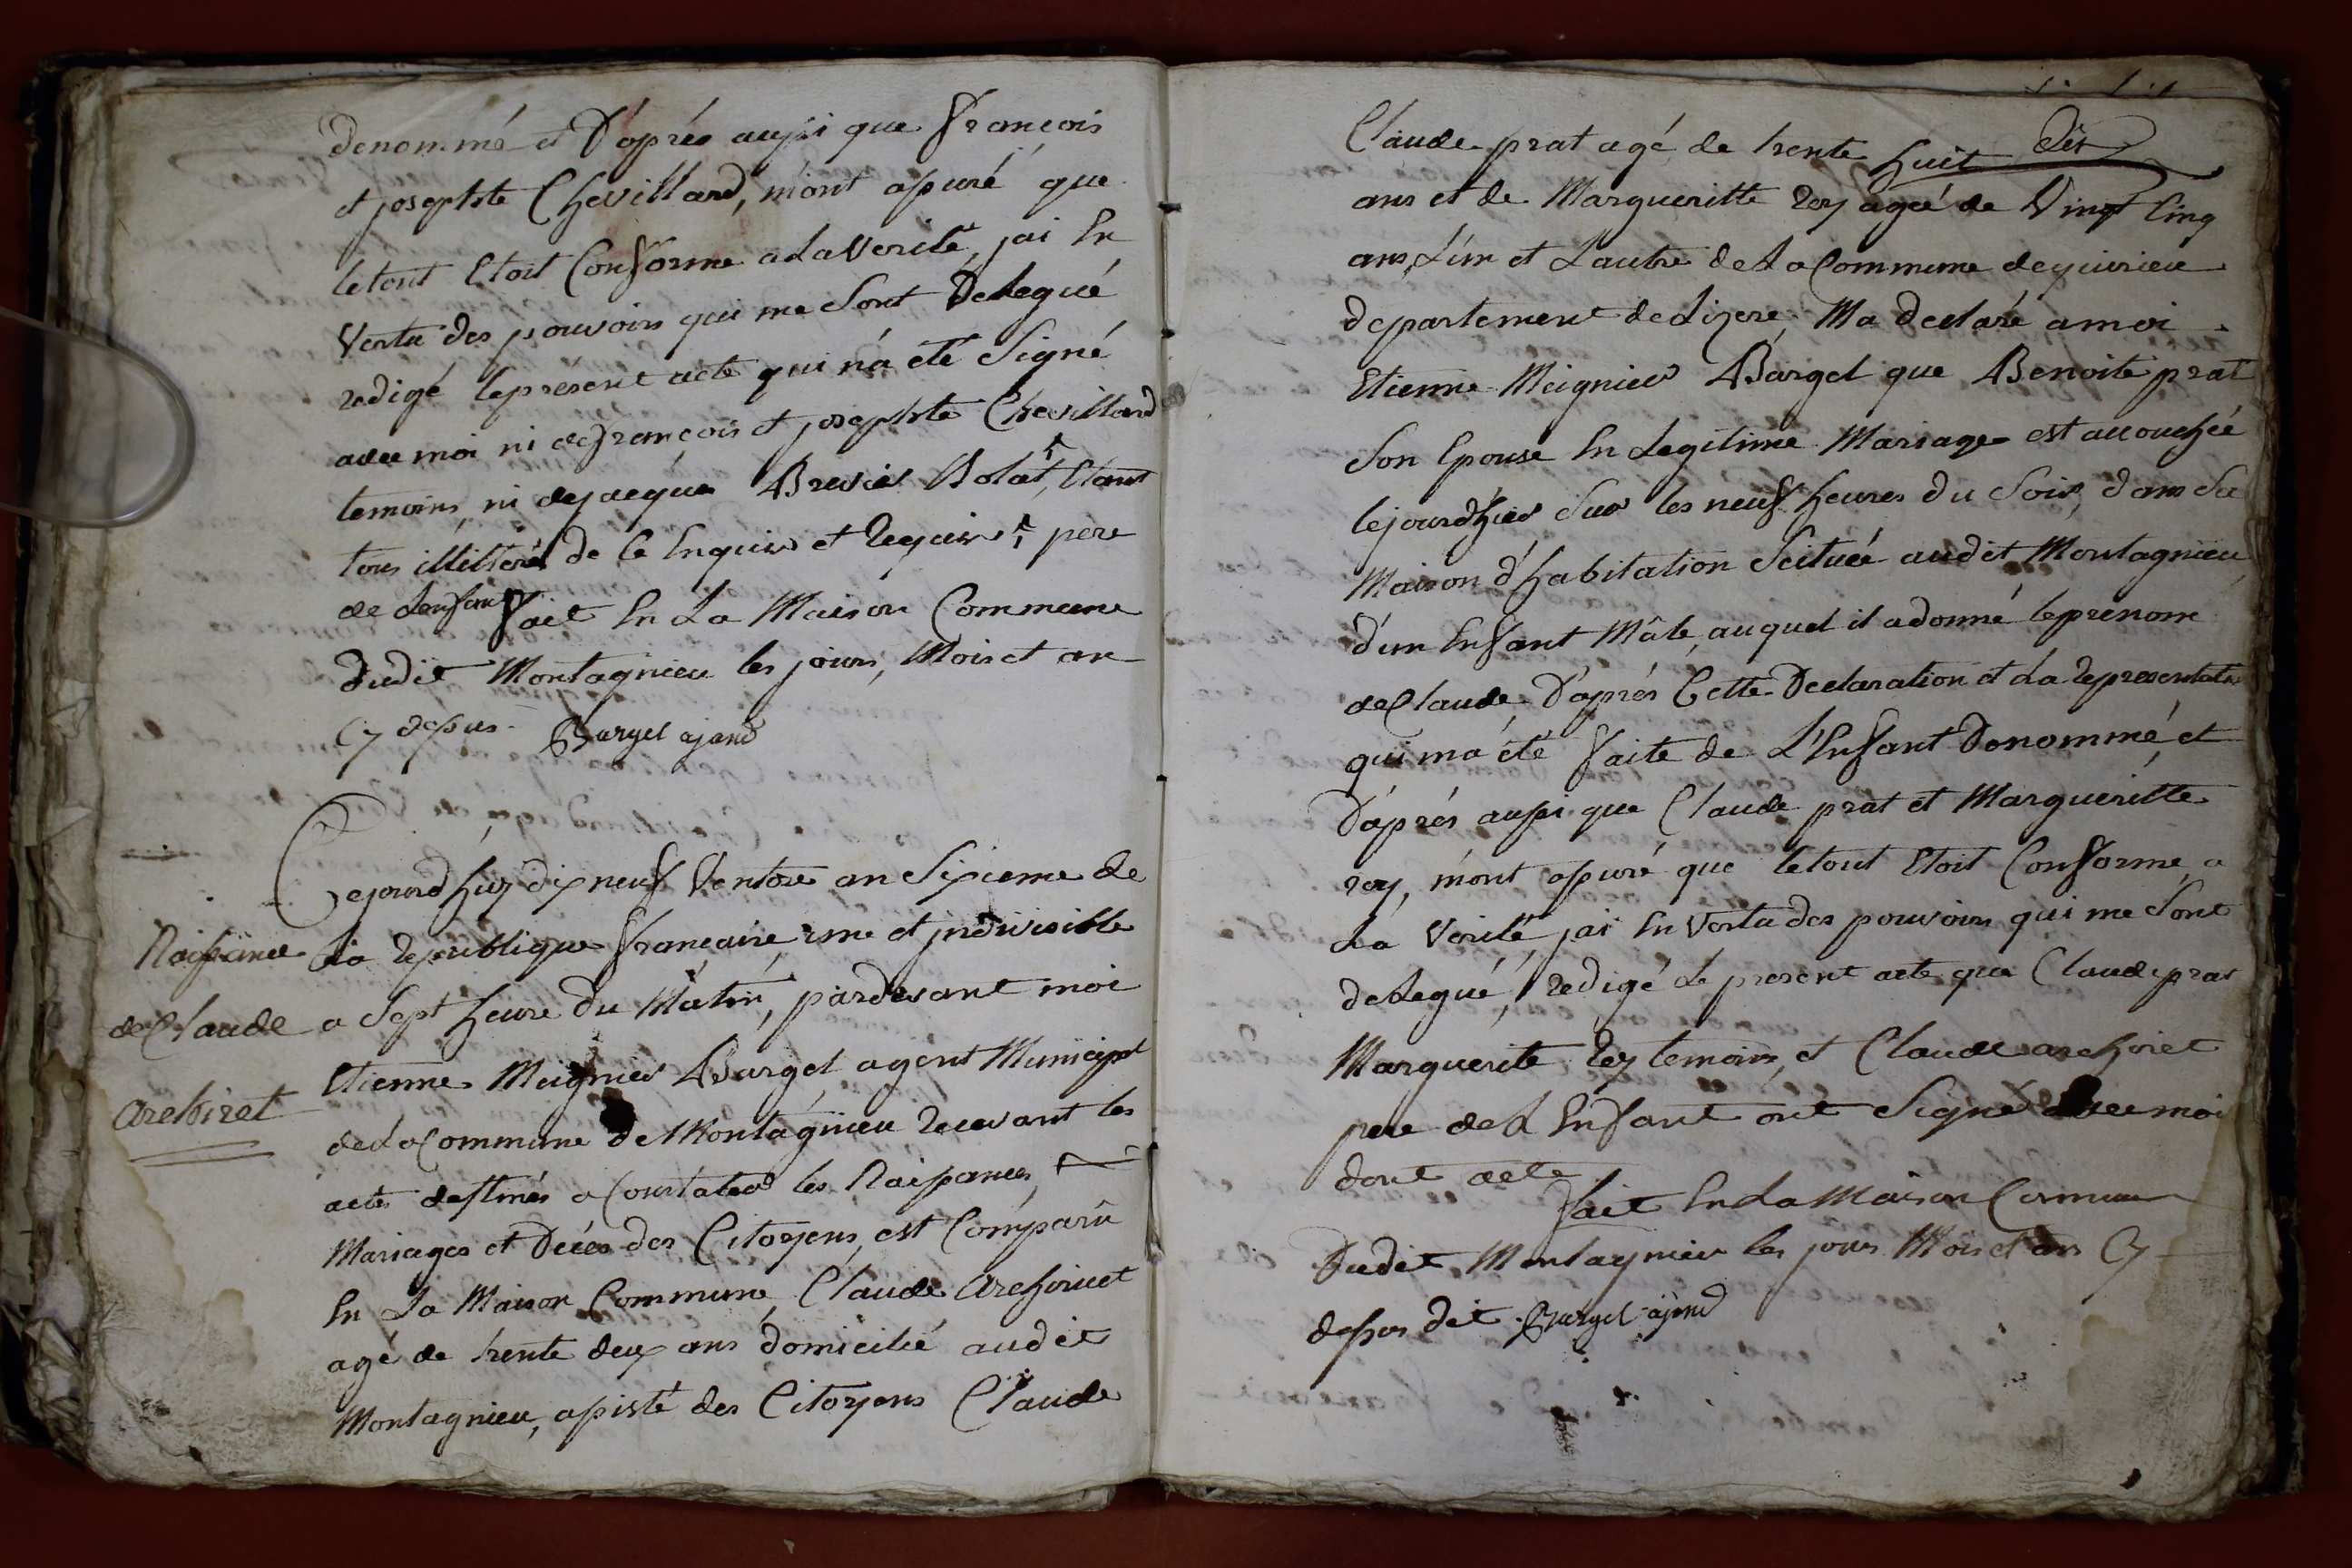 denommé et D'óprés aussi que François
et josephte Chevillard, m'ont assuré que
le tout Etoit Conforme a La Verité, jai En
Vertu des pouvoirs qui me Sont Delegué
redigé le présent acte qui n'a eté Signé
avec moi ni de françois et josephte Chevillard
temoins, ni de jacque Brevier Bolat, Etant
tous illitteré de Ce Enquis et Requis, pere
de Lenfant Fait En La Maison Commune
dudit Montagnieu les jours, Mois et an
Cy dessus. Barget ajand
Cejourd'huy dix neuf Ventose an Sixieme de
La Republique Françaire, une et jndivisible
a Sept heure du Mátin, pardevant moi
Etienne Meignier Barget agent Municipal
de La Commune de Montagnieu Recevant les
actes destinés a Constater les Naissances,
Mariages et Décés des Citoyens, est Comparu
En La Maison Commune, Claude Archiruet
agé de trente deux ans domicilié audit
Montagnieu, assisté des Citoyens Claude
Naissance
de Claude
Archiret
dix
Claude prat agé de trente huit
ans et de Margueritte rey agée de Vingt Cinq
ans, L'un et Lautre de La Commune de quirieu
departement de Lizere. Ma declaré a moi
Etienne Meignier Barget que Benoite prat
Son Epouse En Legitime Mariage est accouchée
le jourd'hier Sur les neuf heures du Soir, dans Sa
Maison d'habitation Scituée audit Montagnieu,
d'un Enfant Mâle, auquel il a donné le prenom
de Claude, D'aprés Cette Declaration et La representation
qui m'a été Faite de L'Enfant Denommé, et
D'áprés aussi que Claude prat et Margueritte
rey, m'ont assuré que le tout Etoit Conforme, a
La Verité, jai En Vertu des pouvoirs qui me Sont
deLegué, redigé Le present acte que Claude prat
Marguerite Rey temoins, et Claude archiret
pere de L'Enfant ont Signé avec moi
dont acte
Fait En La Maison Commune
Dudit Montagnieu les jours Mois et ans Cy
dessus dit Barget ajand